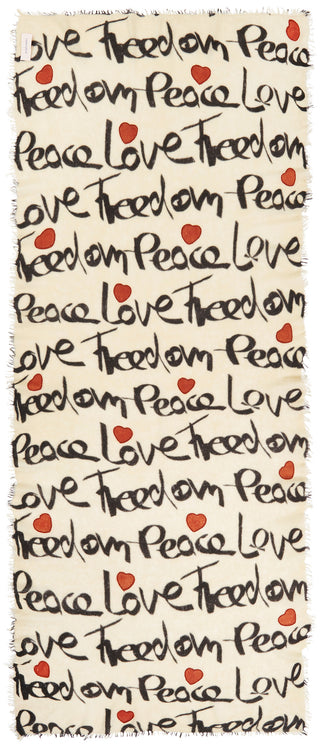 Love Freedom Peace
Freedom Peace Love
Peace Love Freedom
Love Freedom Peace
Freedom Peace Love
Peace Love Freedom
Love Freedom Peace
Freedom Peace Love
Peace Love Freedom
Love Freedom Peace
Freedom Peace Love
Peace Love Freedom
Love Freedom Peace
Freedom Peace Love
Peace Love Freedom